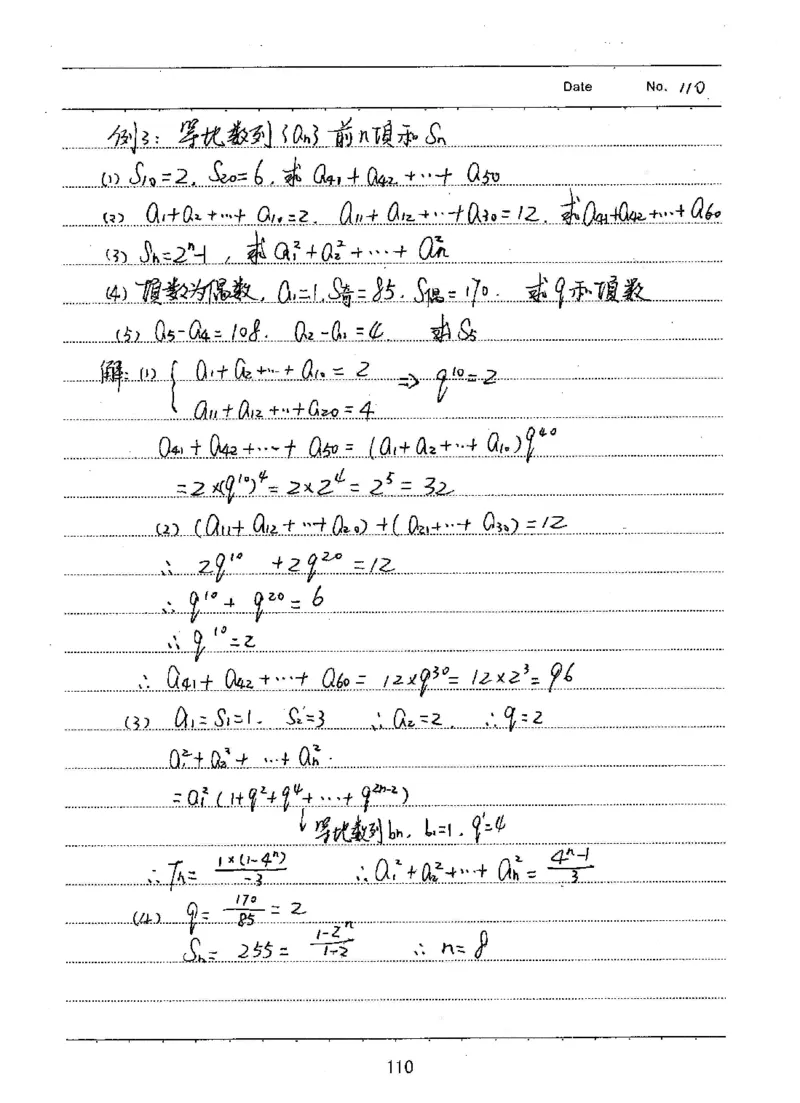 Date No. 110
例3: 等比数列{aₙ}前n項和Sₙ
(1) S₁₀=2, S₂₀=6, 求 a₄₁+a₄₂+…+a₅₀
(2) a₁+a₂+…+a₁₀=2. a₁₁+a₁₂+…+a₃₀=12. 求a₄₁+a₄₂+…+a₆₀
(3) Sₙ=2ⁿ-1, 求 a₁²+a₂²+…+aₙ²
(4) 項数为偶数, a₁=1, S奇=85. S偶=170. 求q和項数
(5) a₅-a₄=108. a₂-a₁=4. 求S₅
解: (1) { a₁+a₂+…+a₁₀=2 ⇒ q¹⁰=2
a₁₁+a₁₂+…+a₂₀=4
a₄₁+a₄₂+…+a₅₀=(a₁+a₂+…+a₁₀)q⁴⁰
=2×(q¹⁰)⁴=2×2⁴=2⁵=32
(2) (a₁₁+a₁₂+…+a₂₀)+(a₂₁+…+a₃₀)=12
∴ 2q¹⁰+2q²⁰=12
∴ q¹⁰+q²⁰=6
∴ q¹⁰=2
∴ a₄₁+a₄₂+…+a₆₀=12×q³⁰=12×2³=96
(3) a₁=S₁=1. S₂=3 ∴a₂=2. ∴q=2
a₁²+a₂²+…+aₙ².
=a₁²(1+q²+q⁴+…+q²ⁿ⁻²)
↓等比数列bₙ, b₁=1, q'=4
∴Tₙ= 1×(1-4ⁿ)/-3 ∴a₁²+a₂²+…+aₙ²= 4ⁿ-1/3
(4) q= 170/85 =2
Sₙ= 255= 1-2ⁿ/1-2 ∴ n=8
110